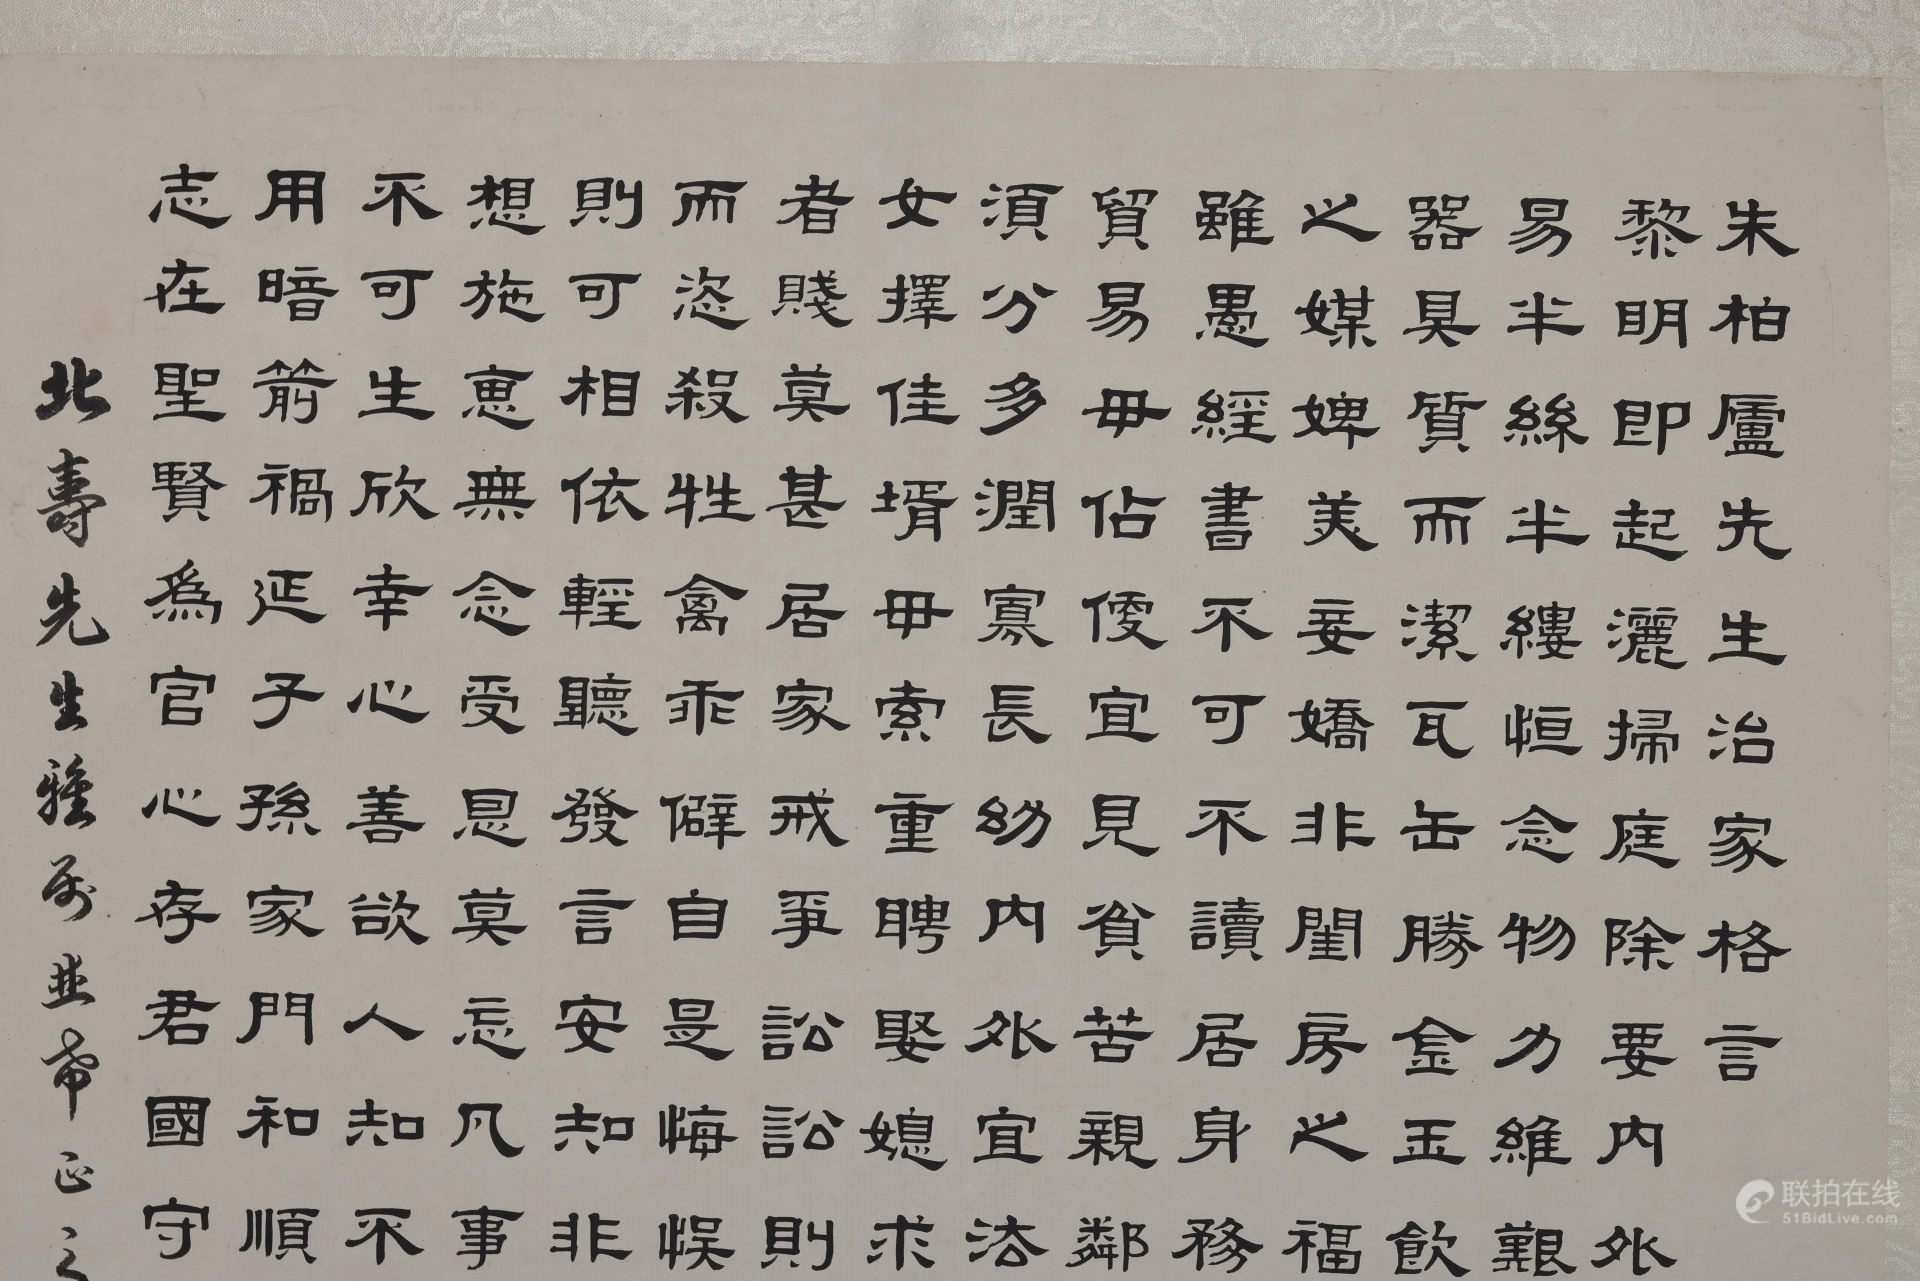 朱柏廬先生治家格言
黎明即起灑掃庭除要内外
易半絲半縷恒念物力維艱
器具質而潔瓦缶勝金玉飲
之媒婢美妾嬌非閨房之福
雖愚經書不可不讀居身務
貿易毋佔便宜見貧苦親鄰
須分多潤寡長幼内外宜法
女擇佳壻毋索重聘娶媳求
者賤莫甚居家戒爭訟訟則
而恣殺牲禽乖僻自是悔悞
則可相依輕聽發言安知非
想施惠無念受恩莫忘凡事
不可生欣幸心善欲人知不
用暗箭禍延子孫家門和順
志在聖賢爲官心存君國守
北壽先生雅屬並希正之
联拍在线
51BidLive.com